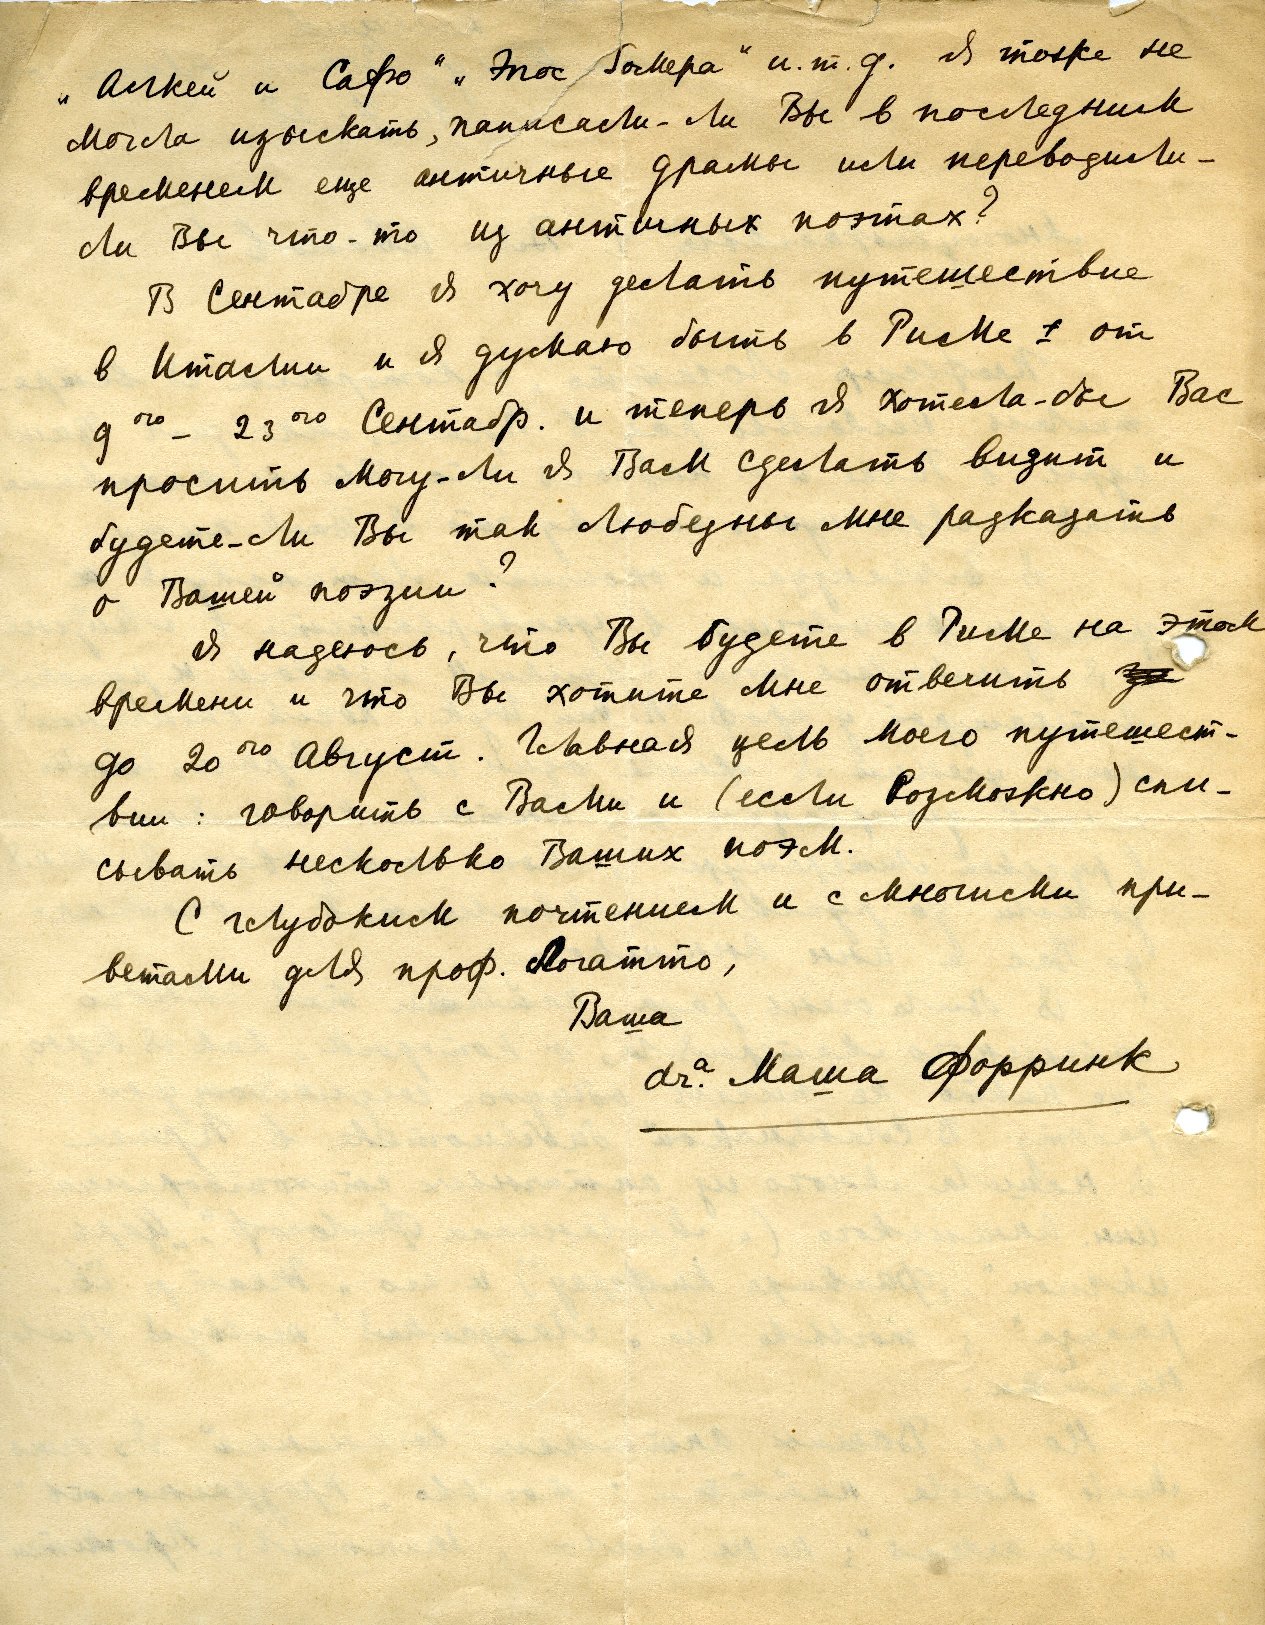 „Алкей и Сафо“ „Эпос Гомера“ и.т.д. Я тоже не
могла изыскать, написали-ли Вы в последним
временем еще античные драмы или переводили-
ли Вы что-то из античных поэтах?
В Сентабре я хочу делать путешествие
в Италии и я думаю быть в Риме ± от
9ого – 23ого Сентабр. и теперь я хотела-бы Вас
просить могу-ли я Вам сделать визит и
будете-ли Вы так любезны мне разказать
о Вашей поэзии?
Я надеюсь, что Вы будете в Риме на этом
времени и что Вы хотите мне отвечить
до 20ого Август. Главная цель моего путешест-
вии: говорить с Вами и (если возможно) спи-
сывать несколько Ваших поэм.
С глубоким почтением и с многими при-
ветами для проф. Логатто,
Ваша
drа. Маша Форринк